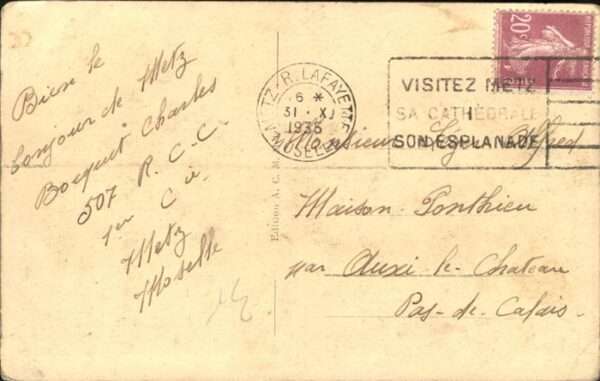 Bien le
bonjour de Metz
Bocquet Charles
507 R. C. C.
1er Cie
Metz
Moselle
Edition A. C. M.
METZ-R. LAFAYETTE
6 *
31 XI
1935
MOSELLE
20c
VISITEZ METZ
SA CATHÉDRALE
SON ESPLANADE
Monsieur Alfred
Maison-Ponthieu
par Auxi-le-Chateau
Pas-de-Calais